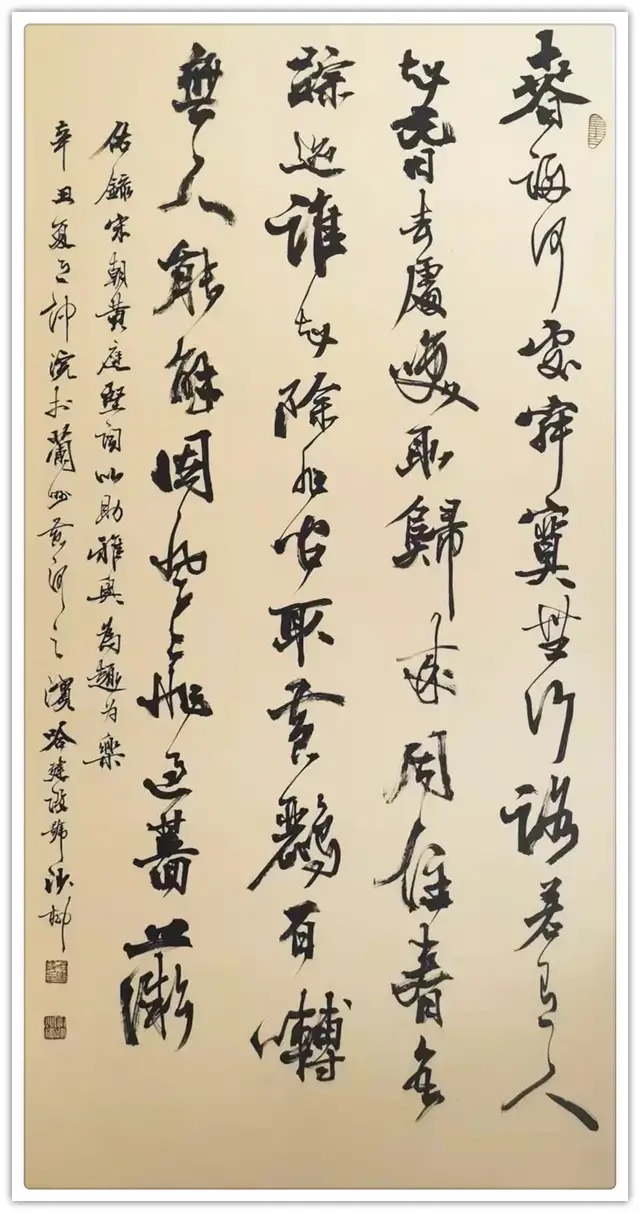 春歸何處寂寞無行路若有人
知春去處喚取歸來同住春無
踪迹誰知除非問取黄鸝百囀
無人能解因風飛過薔薇
錄宋朝黄庭堅詞以助雅興為趣为樂
辛丑夏之仲浣於蘭州黄河之濱哈建設號